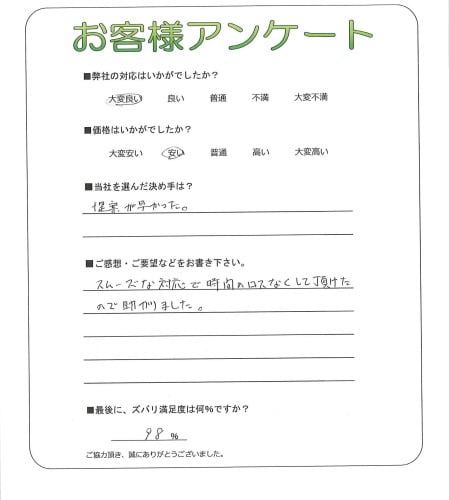 お客様アンケート
■弊社の対応はいかがでしたか?
大変良い 良い 普通 不満 大変不満
■価格はいかがでしたか?
大変安い 安い 普通 高い 大変高い
■当社を選んだ決め手は?
提案が早かった。
■ご感想・ご要望などをお書き下さい。
スムーズな対応で時間のロスなくして頂けた
ので助かりました。
■最後に、ズバリ満足度は何%ですか?
98 %
ご協力頂き、誠にありがとうございました。